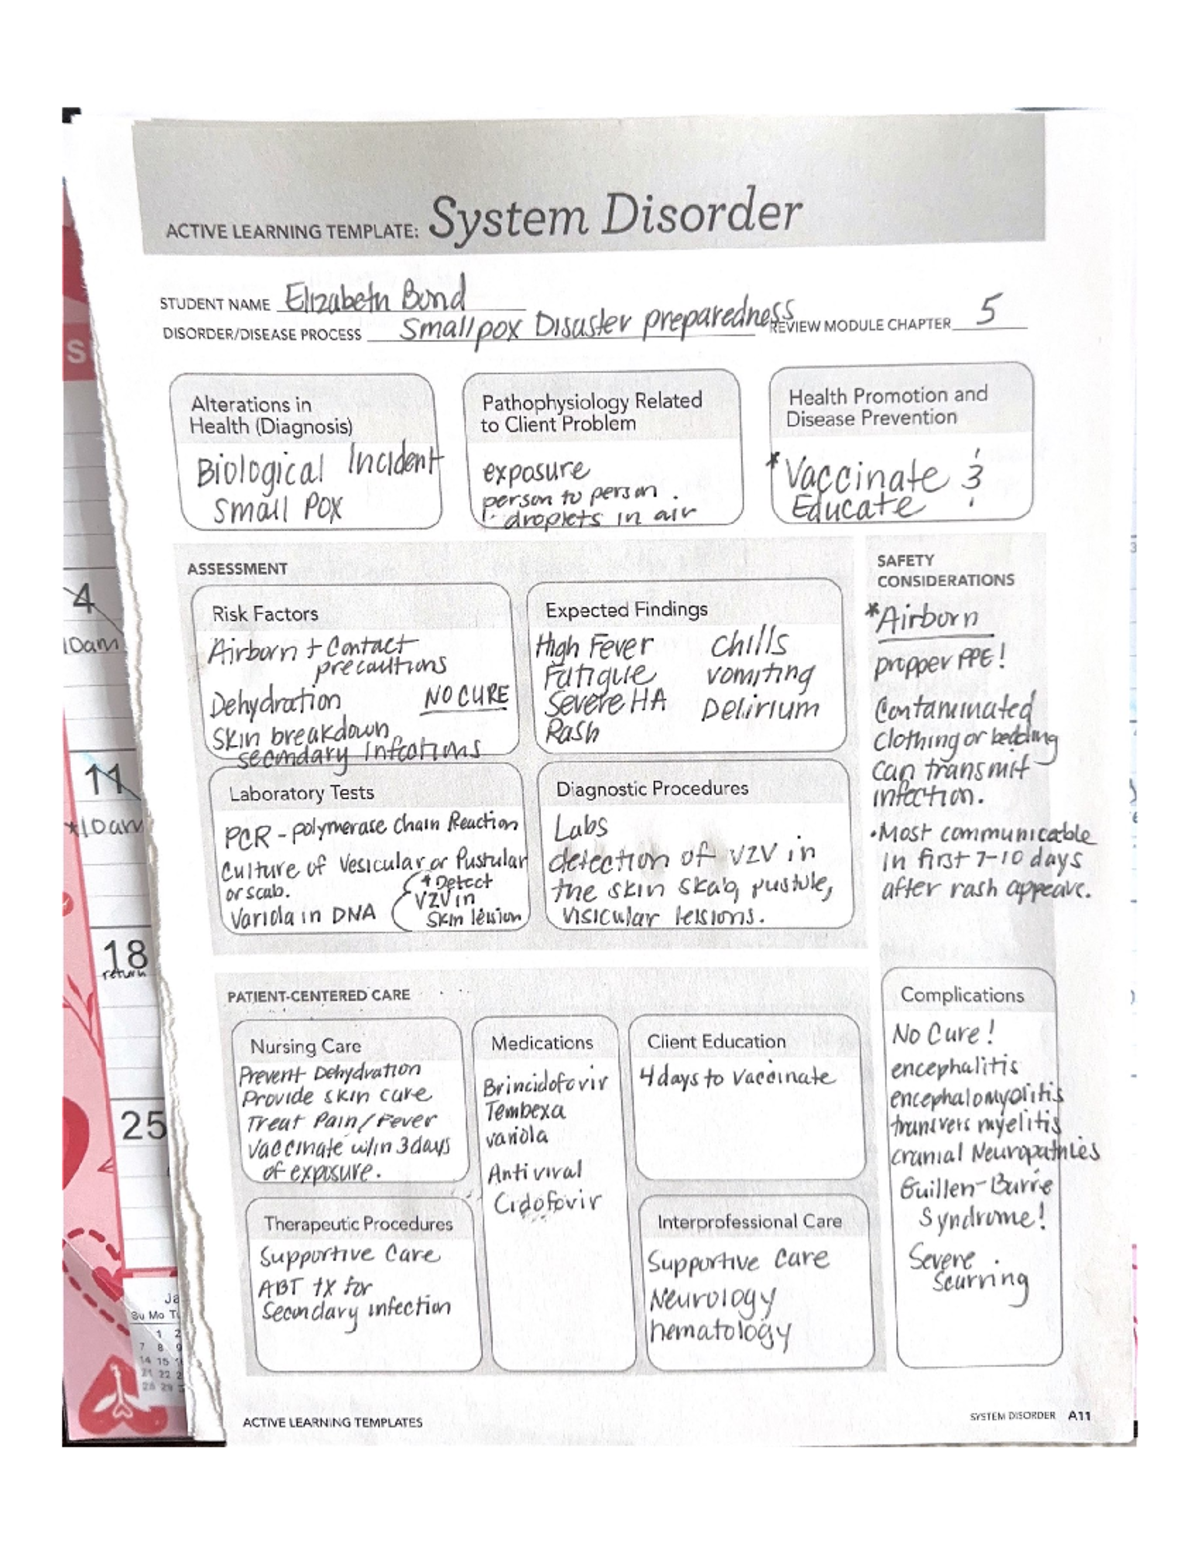 ACTIVE LEARNING TEMPLATE: System Disorder
STUDENT NAME Elizabeth Bond
DISORDER/DISEASE PROCESS Smallpox Disaster preparedness REVIEW MODULE CHAPTER 5
Alterations in
Health (Diagnosis)
Biological Incident
Small Pox
Pathophysiology Related
to Client Problem
exposure
person to person
droplets in air
Health Promotion and
Disease Prevention
*Vaccinate &
Educate !
ASSESSMENT
Risk Factors
Airborn + Contact
precautions
Dehydration NO CURE
Skin breakdown
secondary infections
Expected Findings
High Fever Chills
Fatigue vomiting
Severe HA Delirium
Rash
SAFETY
CONSIDERATIONS
*Airborn
propper PPE!
Contaminated
Clothing or bedding
can transmit
infection.
•Most communicable
in first 7-10 days
after rash appeare.
Laboratory Tests
PCR - polymerase Chain Reaction
Culture of Vesicular or Pustular
or scab.
Variola in DNA
* Detect
VZV in
Skin lesion
Diagnostic Procedures
Labs
detection of VZV in
the skin skab, pustule,
visicular lessions.
PATIENT-CENTERED CARE
Nursing Care
Prevent Dehydration
Provide skin care
Treat Pain/Fever
Vaccinate w/in 3 days
of exposure.
Medications
Brincidofovir
Tembexa
variola
Antiviral
Cidofovir
Client Education
4 days to vaccinate
Complications
No Cure!
encephalitis
encephalomyolitis
transvers myelitis
cranial Neuropathies
Guillen-Barre
Syndrome!
Severe
Scurring
Therapeutic Procedures
Supportive Care
ABT tx for
Secondary infection
Interprofessional Care
Supportive Care
Neurology
hematology
ACTIVE LEARNING TEMPLATES
SYSTEM DISORDER A11
4
10am
11
*10am
18
return
25
Su Mo